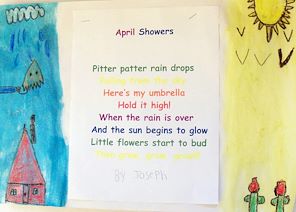 April Showers
Pitter patter rain drops
Falling from the sky
Here's my umbrella
Hold it high!
When the rain is over
And the sun begins to glow
Little flowers start to bud
Then grow, grow, grow!!!
By JosePh